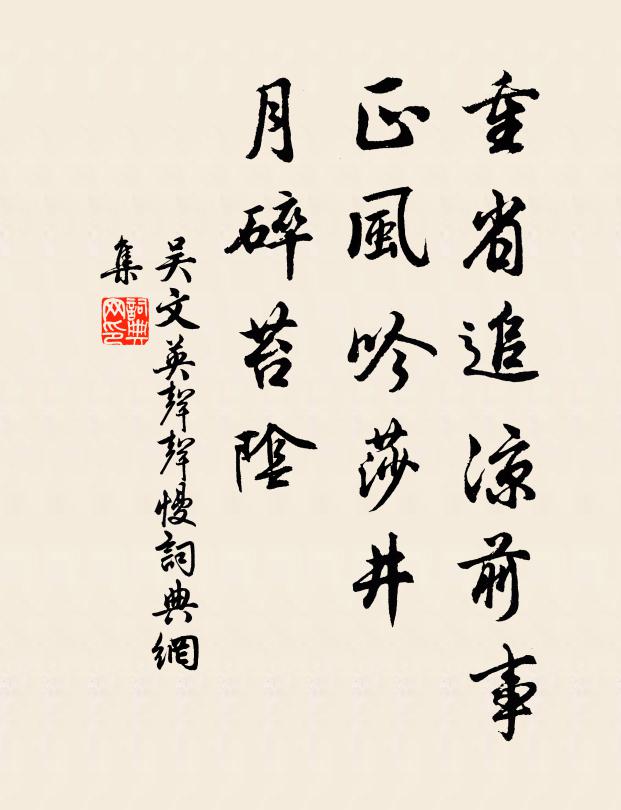 重省追涼前事
正風吟莎井
月碎苔陰
吳文英聲聲慢詞典網
集
詞典網印